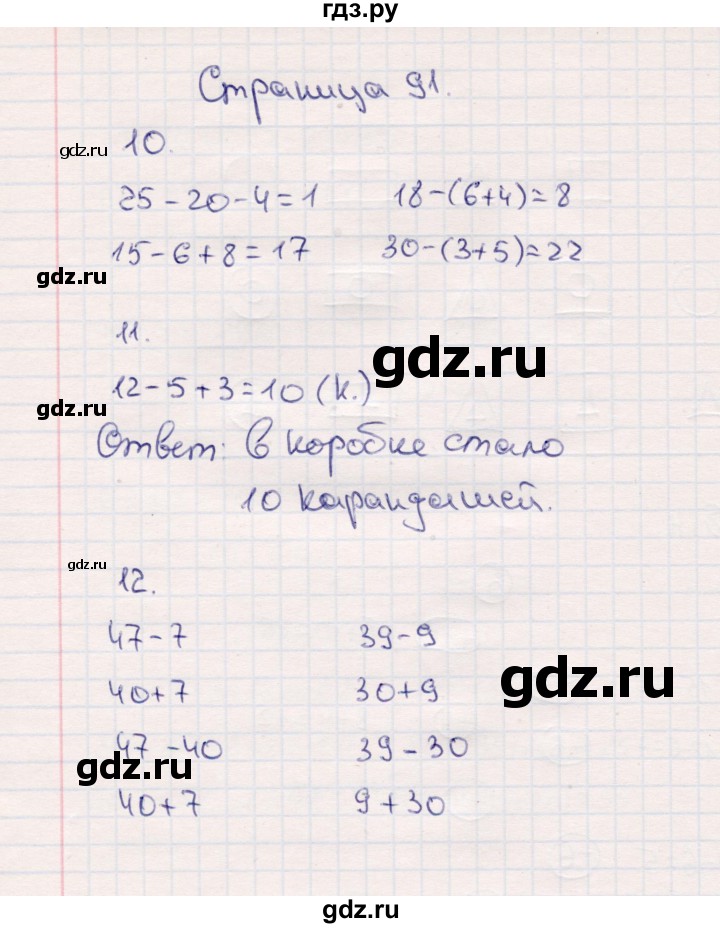 гдз.ру
Страница 91.
gdz.ru
10.
25-20-4=1 18-(6+4)=8
15-6+8=17 30-(3+5)=22
gdz.ru
11.
gdz.ru
12-5+3=10 (к.)
gdz.ru
Ответ: в коробке стало
10 карандашей.
gdz.ru
12.
47-7 39-9
40+7 30+9
gdz.ru
47-40 39-30
gdz.ru
40+7 9+30
gdz.ru